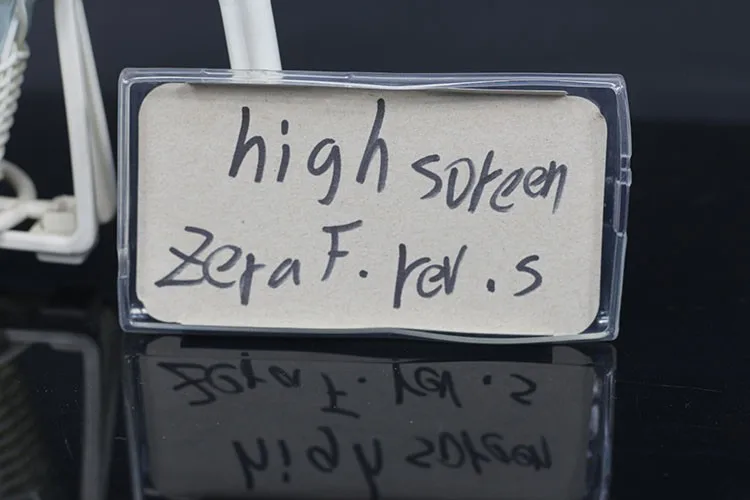 high soreen
Zera F. rev. s